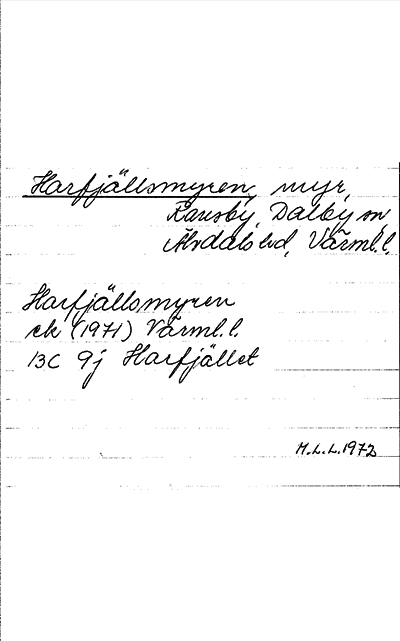 Harfjällsmyren, myr,
Ransby, Dalby sn,
Älvdals hd, Värml.l.
Harfjällsmyren
ek (1971) Värml.l.
13C 9j Harfjället
M.L.L. 1972